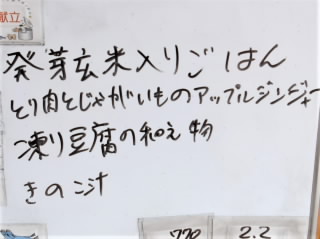 献立
発芽玄米入りごはん
とり肉とじゃがいものアップルジンジャー
凍り豆腐の和え物
きのこ汁
770
2.2